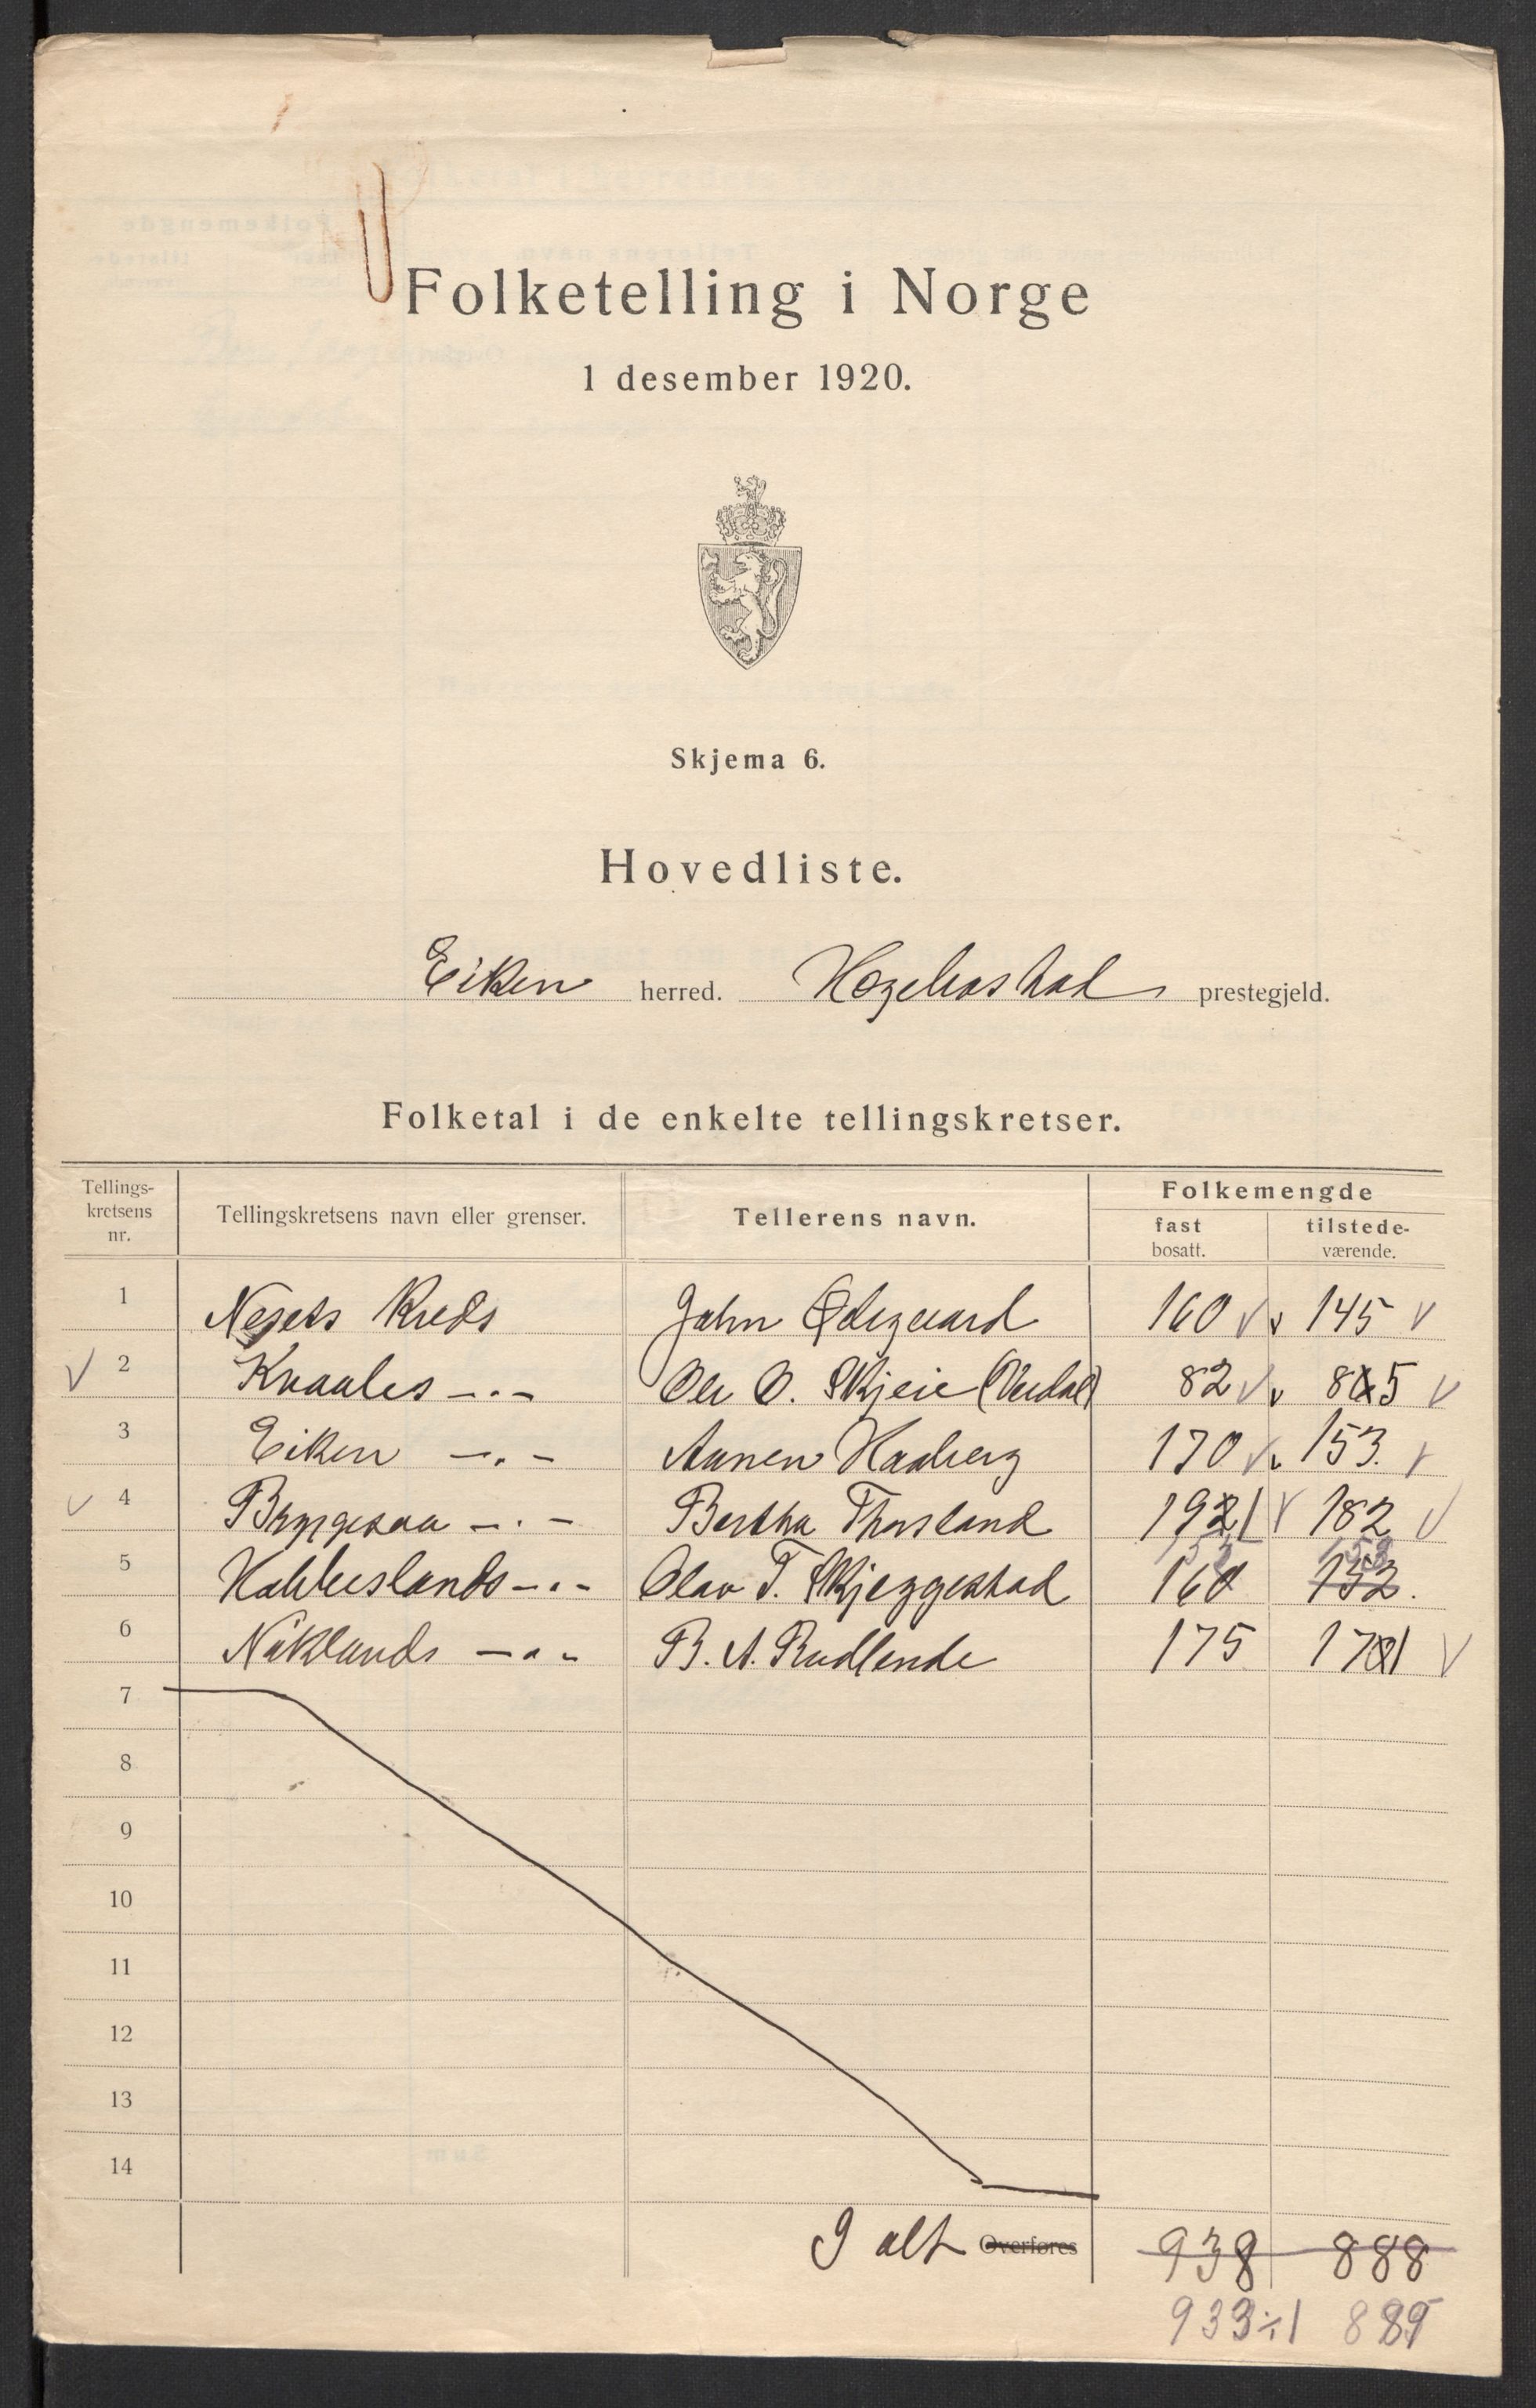 Folketelling i Norge
1 desember 1920.
Skjema 6.
Hovedliste.
Eiken herred. Hægebostad prestegjeld.
Folketal i de enkelte tellingskretser.
Tellings-kretsens nr. Tellingskretsens navn eller grenser. Tellerens navn. Folkemengde
fast bosatt. tilstede-værende.
1 Nesets Kreds Jahn Ødegaard 160 145
2 Kvaales -"- Ole O. Skjeie (Verdal) 82 85
3 Eiken -"- Hadberg 170 153.
4 Bryggesaa -"- Bertha Thorsland 191 182
5 Hobbeslands -"- Olav T. Skjeggestad 160 152.
6 -"- B. A. 175 171
7
8
9
10
11
12
13
14
I alt Overføres 938 888
933÷1 889